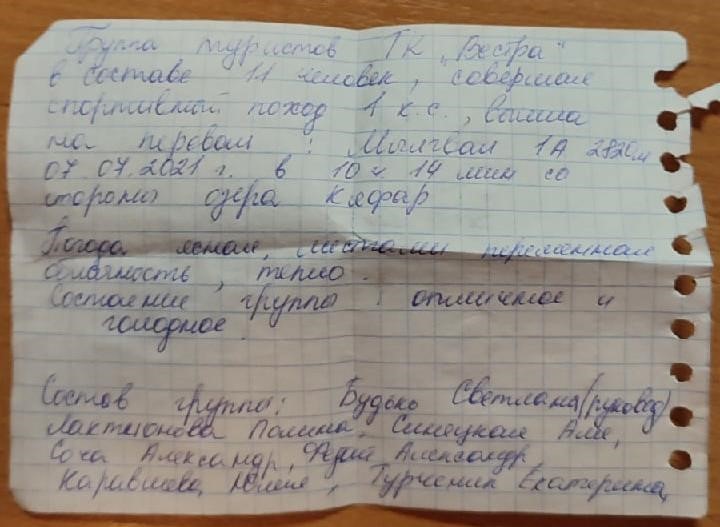 Группа туристов ТК „Вестра“
в составе 11 человек, совершая
спортивный поход 1 к.с., вышла
на перевал: Мылгвал 1А 2820м
07.07.2021 г. в 10 ч 14 мин со
стороны озера Кяфар
Погода ясная, местами переменная
облачность, тепло.
Состояние группы: отличное и
голодное.
Состав группы: Будько Светлана (руковод)
Лактионова Полина, Синецкая
Соча Александр, Александр,
Каравшева, Турченик Екатерина,